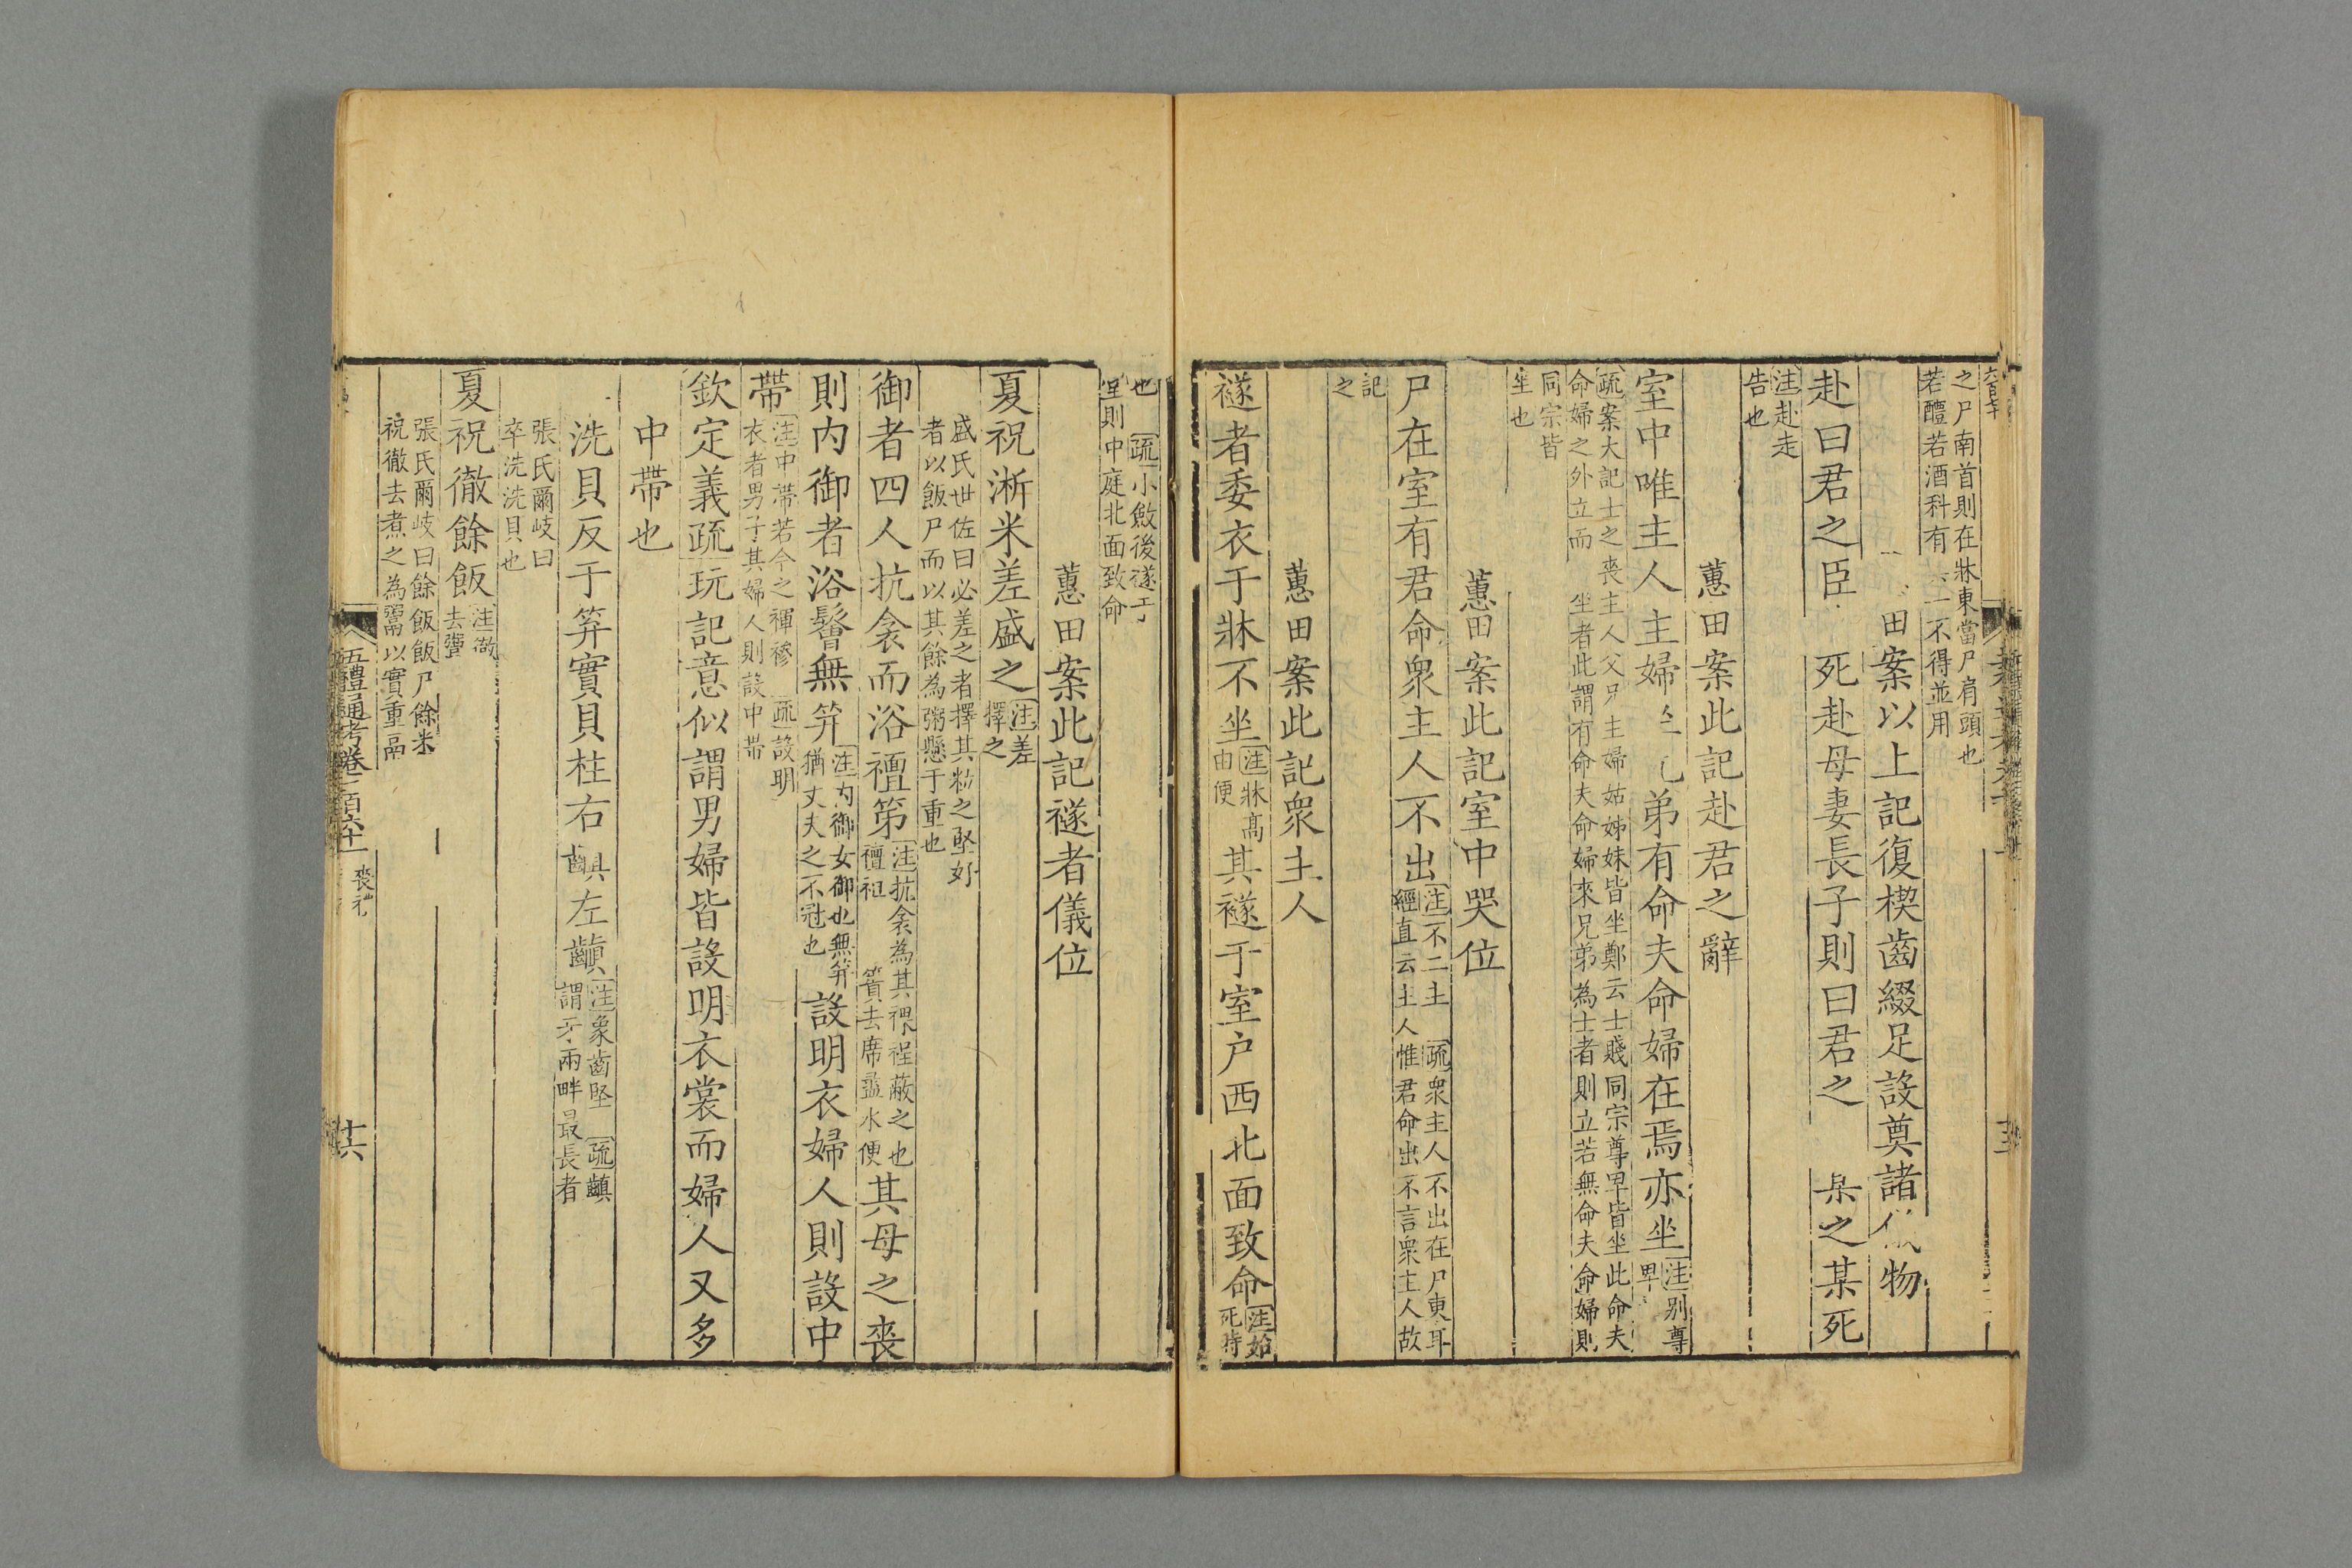 之尸南首則在牀東當尸肩頭也
若醴若酒科有一不得並用
田案以上記復楔齒綴足設奠諸儀物
赴曰君之臣死赴母妻長子則曰君之某之某死
注赴走
告也
蕙田案此記赴君之辭
室中唯主人主婦坐兄弟有命夫命婦在焉亦坐
注别尊
卑
疏案大記士之喪主人父兄主婦姑姊妹皆坐鄭云士賤同宗尊卑皆坐此命夫
命婦之外立而坐者此謂有命夫命婦來兄弟為士者則立若無命夫命婦則
同宗皆
坐也
蕙田案此記室中哭位
尸在室有君命衆主人不出
注不二主疏衆主人不出在尸東耳
經直云主人惟君命出不言衆主人故
記
之
蕙田案此記衆主人
襚者委衣于牀不坐
注牀高
由便
其襚于室户西北面致命
注始
死時
也疏小斂後襚于
堂則中庭北面致命
蕙田案此記襚者儀位
夏祝淅米差盛之
注差
擇之
盛氏世佐曰必差之者擇其粒之堅好
者以飯尸而以其餘為粥懸于重也
御者四人抗衾而浴襢第
注抗衾為其裸裎蔽之也
襢袒簀去席盝水便
其母之喪
則内御者浴鬠無笄
注内御女御也無笄
猶丈夫之不冠也
設明衣婦人則設中
帶
注中帶若今之褌襂疏設明
衣者男子其婦人則設中帶
欽定義疏玩記意似謂男婦皆設明衣裳而婦人又多
中帶也
洗貝反于笄實貝柱右齻左齻
注象齒堅疏齻
謂牙兩畔最長者
張氏爾岐曰
卒洗洗貝也
夏祝徹餘飯
注徹
去鬻
張氏爾岐曰餘飯飯尸餘米
祝徹去煮之為鬻以實重鬲
五禮通考卷二百六十一
喪禮
十六